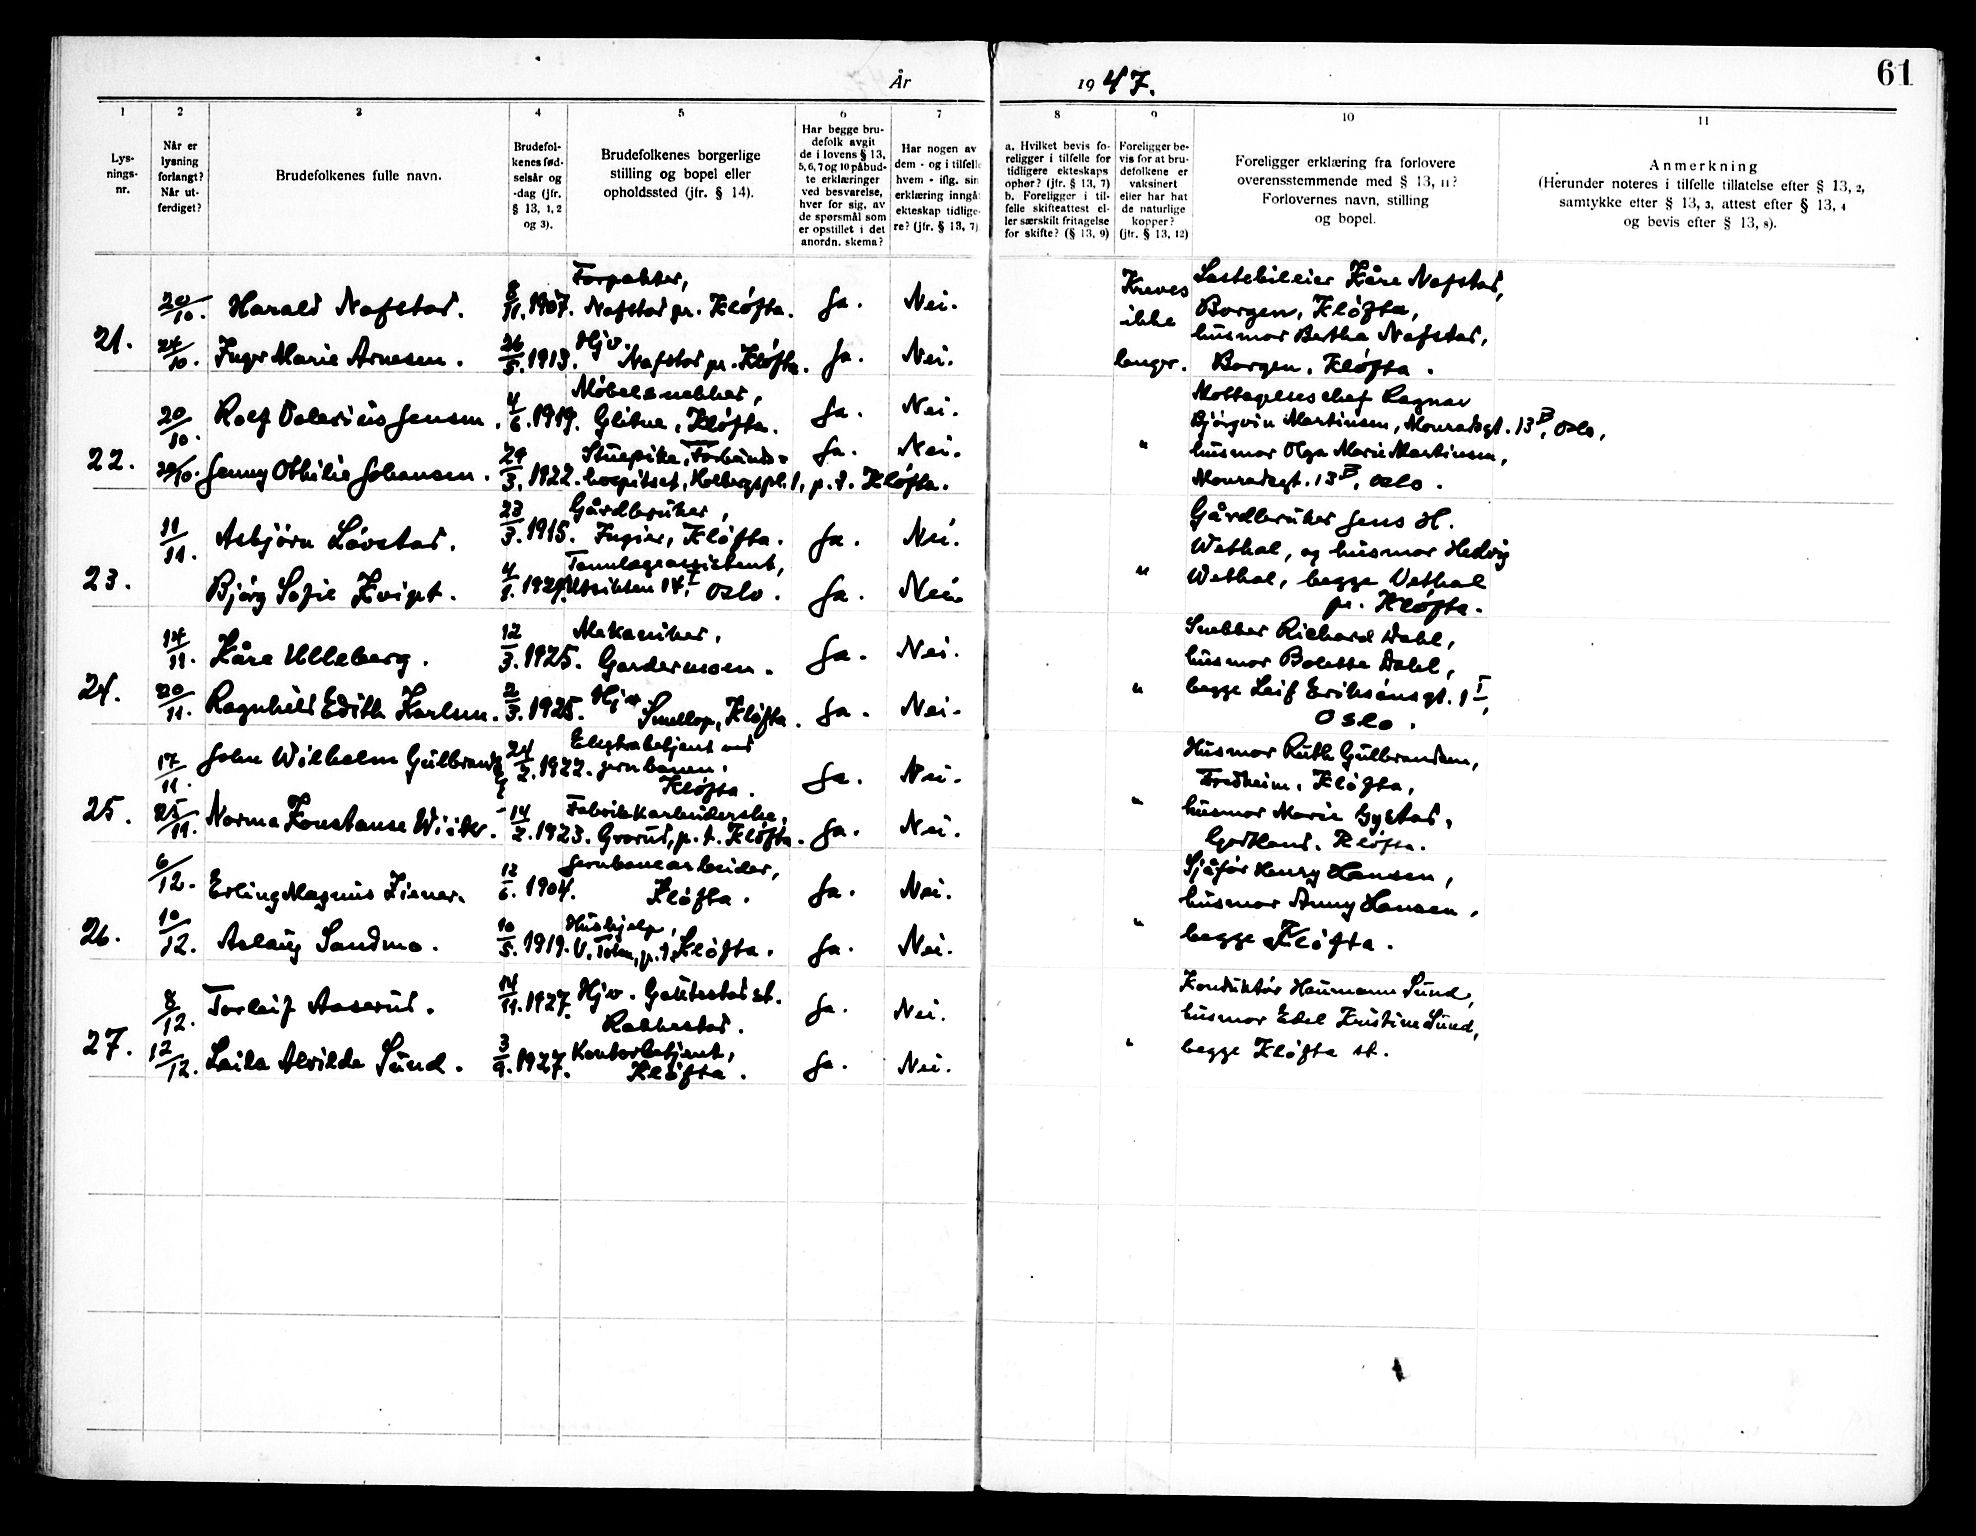 61
År 1947.
1
2
3
4
5
6
7
8
9
10
11
Lys-
nings-
nr.
Når er
lysning
forlangt?
Når ut-
ferdiget?
Brudefolkenes fulle navn.
Brudefol-
kenes fød-
selsår og
-dag (jfr.
§ 13, 1, 2
og 3).
Brudefolkenes borgerlige
stilling og bopel eller
opholdssted (jfr. § 14).
Har begge bru-
defolk avgit
de i lovens § 13,
5, 6, 7 og 10 påbud-
te erklæringer
ved besvarelse,
hver for sig, av
de spørsmål som
er opstillet i det
anordn. skema?
Har nogen av
dem - og i tilfelle
hvem - iflg. sin
erklæring inngå
ekteskap tidlige-
re? (jfr. § 13, 7)
a. Hvilket bevis fo-
religger i tilfelle for
tidligere ekteskaps
ophør? (jfr. § 13, 7)
b. Foreligger i til-
felle skifteattest el-
ler særskilt fritagelse
for skifte? (§ 13, 9)
Foreligger be-
vis for at bru-
defolkene er
vaksinert
eller har hat
de naturlige
kopper?
(jfr. § 13, 12)
Foreligger erklæring fra forlovere
overensstemmende med § 13, 11?
Forlovernes navn, stilling
og bopel.
Anmerkning
(Herunder noteres i tilfelle tillatelse efter § 13, 2,
samtykke efter § 13, 3, attest efter § 13, 4
og bevis efter § 13, 8).
21.
20/10. Harald Nafstad. 8/11. 1907. Forpakter,
Nafstad pr. Kløfta. Ja. Nei.
24/10. Inger Marie Arnesen. 26/5. 1913. Hjv.
Nafstad pr. Kløfta. Ja. Nei.
Kreves
ikke
lenger.
Lastebileier Kåre Nafstad,
Borgen, Kløfta,
husmor Bertha Nafstad,
Borgen, Kløfta.
22.
20/10. Rolf Valerius Jensen. 4/6. 1919. Møbelsnekker,
Glitne, Kløfta. Ja. Nei.
Jenny Othilie Johansen. 3. 1922. Stuepike, Forbunds-
hospitset, Holbergspl. 1, p.t. Kløfta. Ja. Nei.
"
Mottagelseschef Ragnar
Bjørgvin Martinsen, Monradsgt. 13, Oslo,
husmor Olga Marie Martinsen,
Monradsgt. 13, Oslo.
23.
11/11. Asbjørn Løvstad. 23/3. 1915. Gårdbruker,
Fugier, Kløfta. Ja. Nei.
Bjørg Sofie Kvigt. Tannlegeassistent,
Utsikten 14 I, Oslo. Ja. Nei.
"
Gårdbruker Jens H.
Wethal, og husmor Hedvig
Wethal, begge Vethal
pr. Kløfta.
24.
14/11. Kåre Ulleberg. 12/3. 1925. Mekaniker,
Gardermoen. Ja. Nei.
20/11. Ragnhild Edith Karlsen. 2/3. 1925. Hjv.
Smellop, Kløfta. Ja. Nei.
"
Snekker Richard Dahl,
husmor Boletta Dahl,
begge Leif Eriksønsgt. 1 I,
Oslo.
25.
17/11. John Wilhelm Gulbrandsen 24/2. 1922. Ekstrabetjent ved
jernbanen,
Kløfta. Ja. Nei.
25/11. Norma Konstanse Wiik. 14/2. 1923. Fabrikkarbeiderske,
Grorud, p.t. Kløfta. Ja. Nei.
"
Husmor Ruth Gulbrandsen,
Fredheim, Kløfta,
husmor Marie Gystad,
Godtland, Kløfta.
26.
6/12. Erling Magnus Kiener. 12/6. 1904. Jernbanearbeider,
Kløfta. Ja. Nei.
10/12. Aslaug Sandmo. 10/5. 1919. Hushjelp,
V. Toten, p.t. Kløfta. Ja. Nei.
"
Sjåfør Henry Hansen,
husmor Anny Hansen,
begge Kløfta.
27.
8/12. Torleif Aaserud. 14/11. 1927. Hjv. Gautestad st.
Rakkestad. Ja. Nei.
12/12. Laila Alvilde Sund. 3/9. 1927. Kontorbetjent,
Kløfta. Ja. Nei.
"
Konduktør Haumann Sund,
husmor Edel Kristine Sund,
begge Kløfta st.